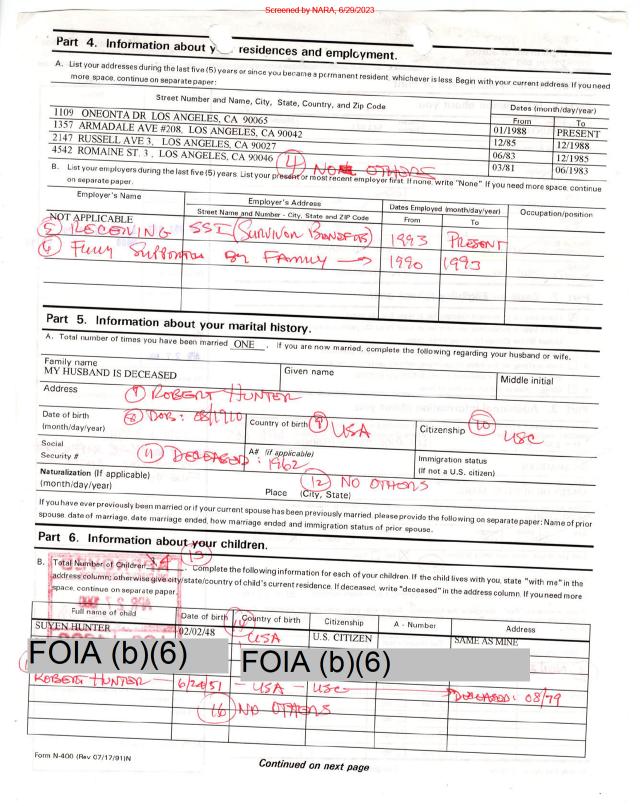 Screened by NARA, 6/29/2023
Part 4. Information about y residences and employment.
A. List your addresses during the last five (5) years or since you became a permanent resident, whichever is less. Begin with your current address. If you need
more space, continue on separate paper:
Street Number and Name, City, State, Country, and Zip Code
Dates (month/day/year)
From To
1109 ONEONTA DR LOS ANGELES, CA 90065 01/1988 PRESENT
1357 ARMADALE AVE #208, LOS ANGELES, CA 90042 12/85 12/1988
2147 RUSSELL AVE 3, LOS ANGELES, CA 90027 06/83 12/1985
4542 ROMAINE ST. 3, LOS ANGELES, CA 90046 03/81 06/1983
4 NO OTHERS
B. List your employers during the last five (5) years. List your present or most recent employer first. If none, write "None" If you need more space, continue
on separate paper.
Employer's Name Employer's Address Dates Employed (month/day/year) Occupation/position
Street Name and Number - City, State and ZIP Code From To
NOT APPLICABLE
5 RECEIVING SSI (SURVIVOR BENEFITS) 1993 PRESENT
6 FULLY SUPPORTED BY FAMILY → 1990 1993
Part 5. Information about your marital history.
A. Total number of times you have been married ONE . If you are now married, complete the following regarding your husband or wife.
Family name Given name Middle initial
MY HUSBAND IS DECEASED
Address 7 ROBERT HUNTER
Date of birth (month/day/year) 8 DOB: 08/1910 Country of birth 9 USA Citizenship 10 USC
Social Security # 11 DECEASED: 1962 A# (if applicable) Immigration status (If not a U.S. citizen)
Naturalization (If applicable) 12 NO OTHERS
(month/day/year) Place (City, State)
If you have ever previously been married or if your current spouse has been previously married, please provide the following on separate paper: Name of prior
spouse, date of marriage, date marriage ended, how marriage ended and immigration status of prior spouse.
Part 6. Information about your children.
13
B. Total Number of Children . Complete the following information for each of your children. If the child lives with you, state "with me" in the
address column; otherwise give city/state/country of child's current residence. If deceased, write "deceased" in the address column. If you need more
space, continue on separate paper.
Full name of child Date of birth Country of birth Citizenship A - Number Address
SUYEN HUNTER 02/02/48 USA U.S. CITIZEN SAME AS MINE
FOIA (b)(6) FOIA (b)(6)
ROBERT HUNTER - 6/24/51 - USA - USC DECEASED: 08/79
16 NO OTHERS
Form N-400 (Rev 07/17/91)N
Continued on next page